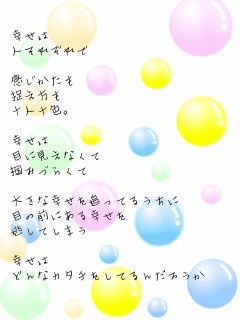 幸せは
人それぞれで
感じかたも
捉え方も
十人十色。
幸せは
目に見えなくて
掴みづらくて
大きな幸せを追ってるうちに
目の前にある幸せを
逃してしまう
幸せは
どんなカタチをしてるんだろうか